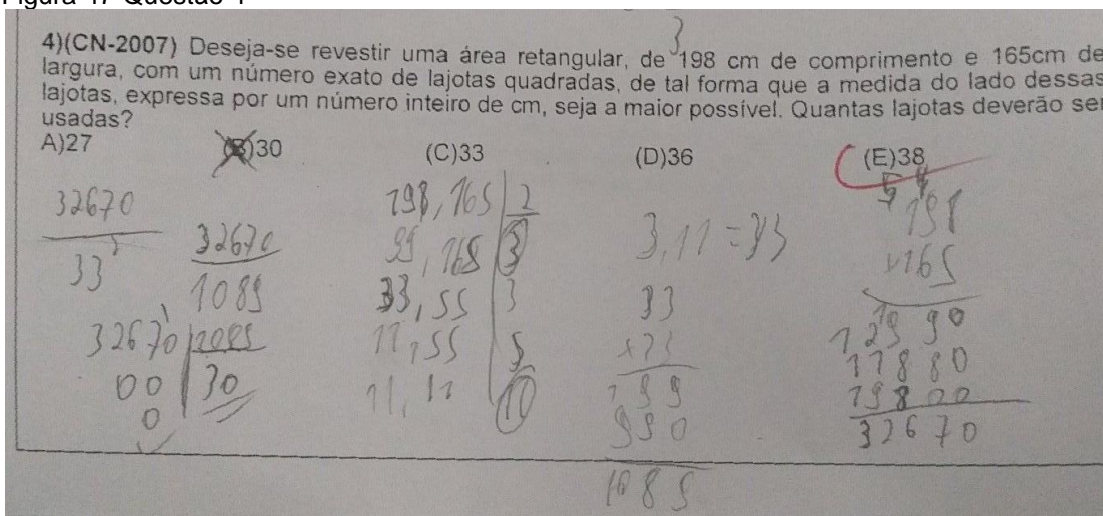 Figura 17 Questão 4
3
4)(CN-2007) Deseja-se revestir uma área retangular, de 198 cm de comprimento e 165cm de
largura, com um número exato de lajotas quadradas, de tal forma que a medida do lado dessas
lajotas, expressa por um número inteiro de cm, seja a maior possível. Quantas lajotas deverão ser
usadas?
A)27 (B)30 (C)33 (D)36 (E)38
32670
33²
32670
1089
32670 1089
00 30
0
198, 165 2
99, 165 3
33, 55 3
11, 55 5
11, 11
3,11 = 33
33
x33
99
990
1089
198
x165
990
11880
19800
32670